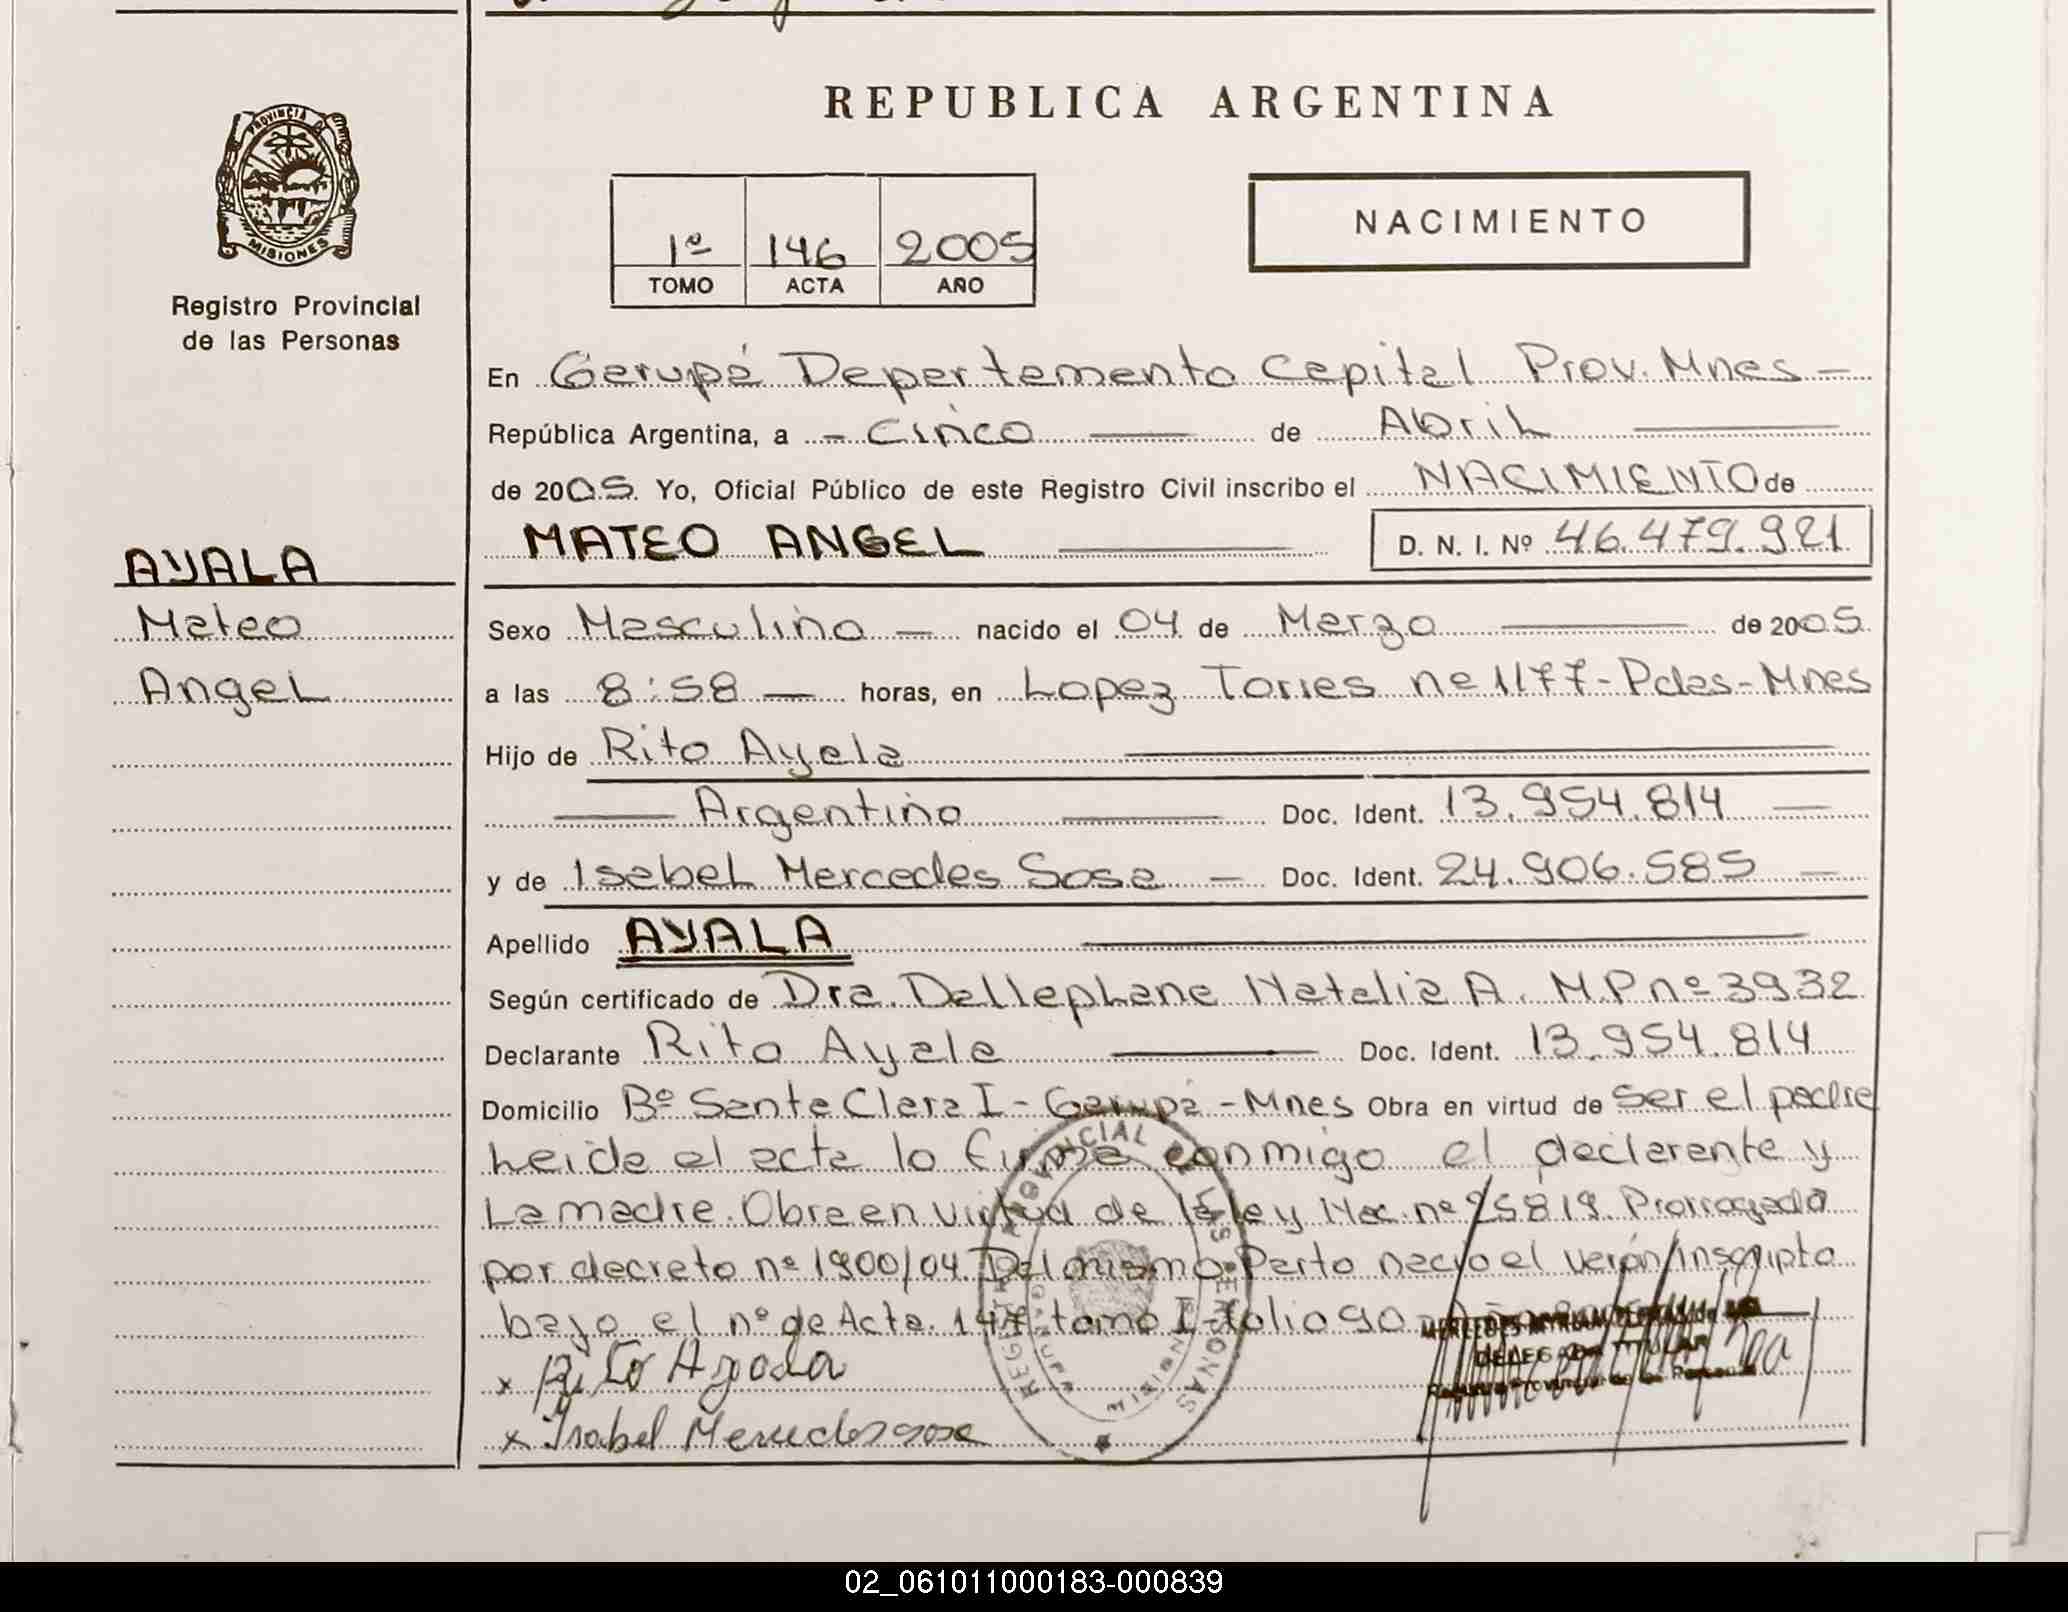 PROVINCIA DE
MISIONES
Registro Provincial
de las Personas
AYALA
Mateo
Angel
REPUBLICA ARGENTINA
1º 146 2005
TOMO ACTA AÑO
NACIMIENTO
En Garupá Departamento Capital Prov. Mnes -
República Argentina, a - Cinco de Abril
de 2005. Yo, Oficial Público de este Registro Civil inscribo el NACIMIENTO de
MATEO ANGEL D. N. I. Nº 46.479.921
Sexo Masculino nacido el 04 de Marzo de 2005
a las 8:58 horas, en Lopez Torres nº 1177 - Pdas - Mnes
Hijo de Rito Ayala
Argentino Doc. Ident. 13.954.814
y de Isabel Mercedes Sosa Doc. Ident. 24.906.585
Apellido AYALA
Según certificado de Dra. Dallephane Natalia A. M.P nº 3932
Declarante Rito Ayala Doc. Ident. 13.954.814
Domicilio Bº Santa Clara I - Garupá - Mnes Obra en virtud de ser el padre
Leida el acta lo firma conmigo el declarante y
La madre. Obra en virtud de la ley Nac. nº 25819. Prorrogada
por decreto nº 1900/04. Del mismo Parto nacio el varón inscripto
bajo el nº de Acta. 147 tomo I folio 90
x Rito Ayala
x Isabel Mercedes sosa
REGISTRO PROVINCIAL DE LAS PERSONAS
GARUPA
MISIONES
DELEGADA TITULAR
Registro Provincial de las Personas
02_061011000183-000839